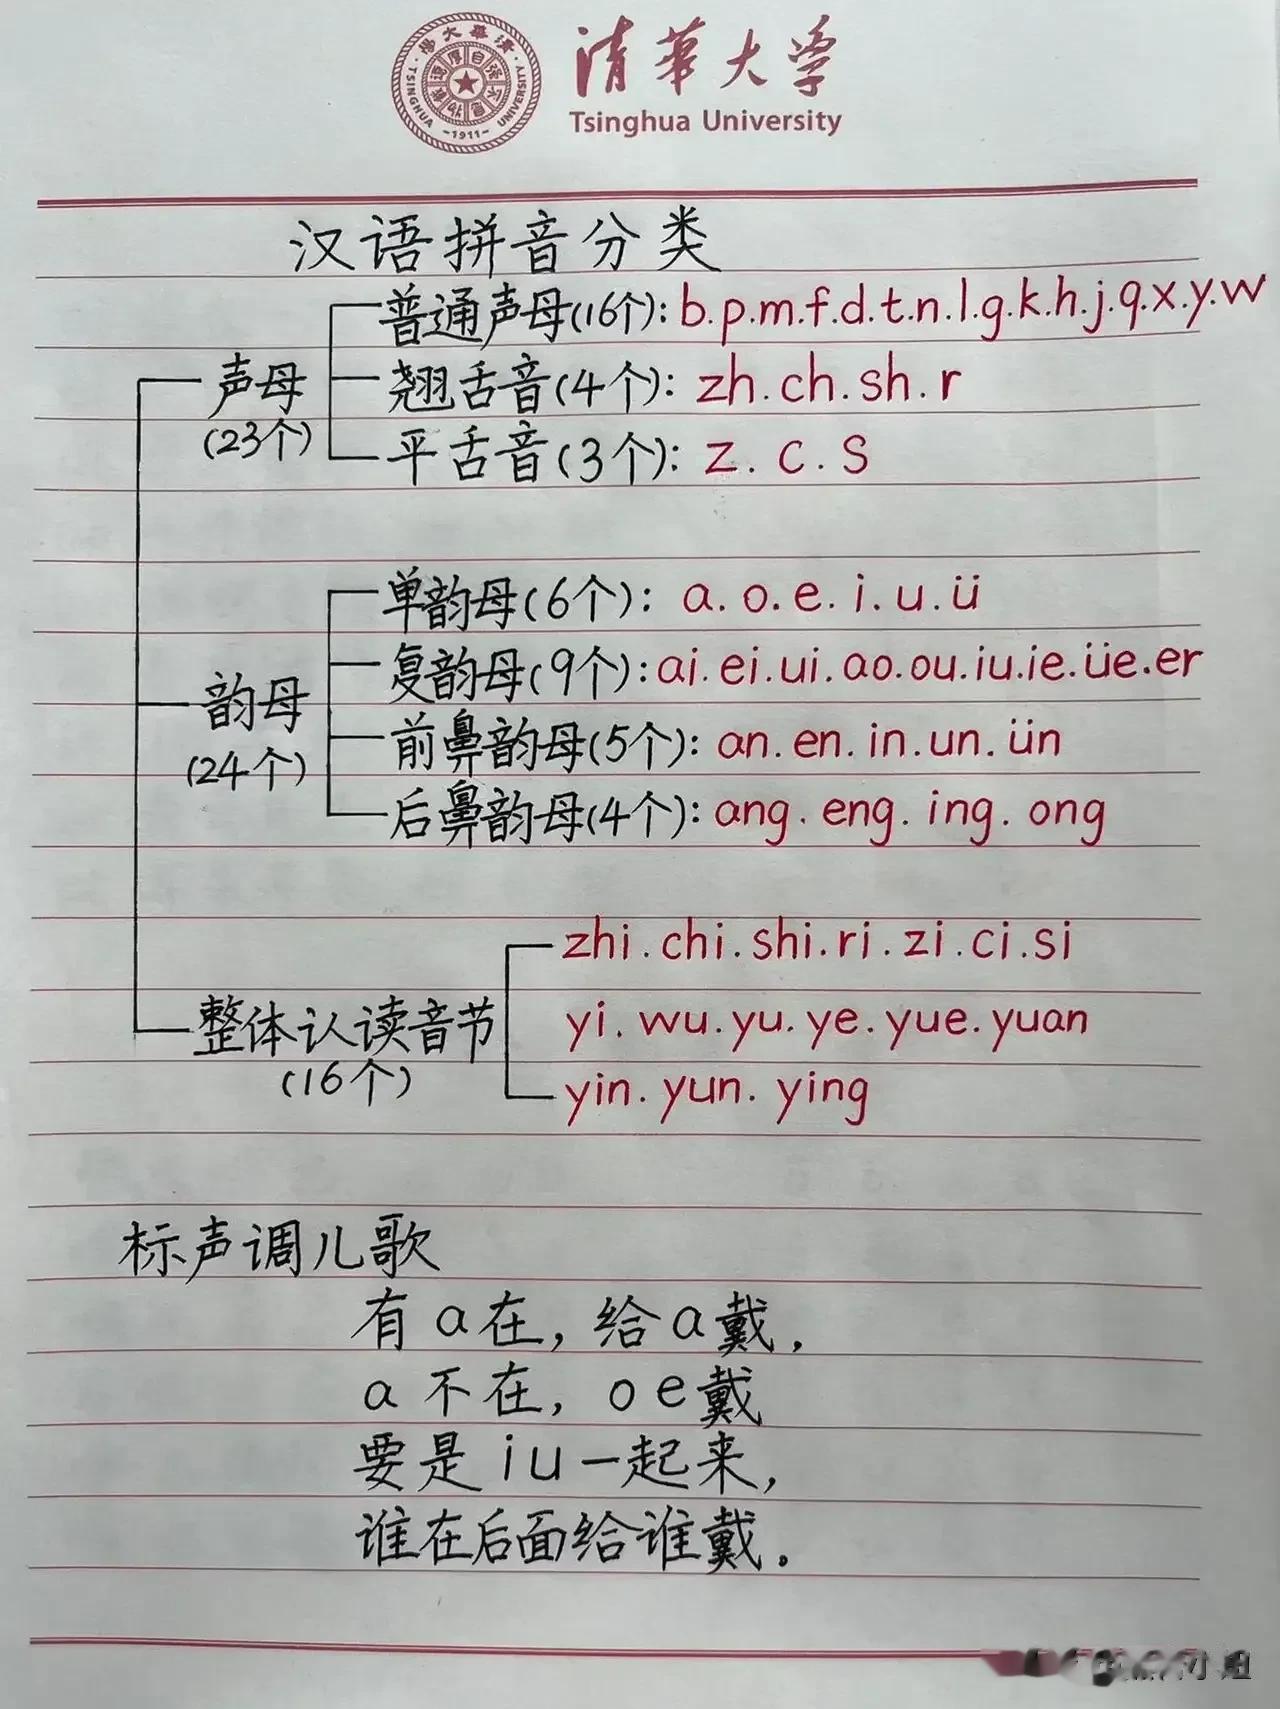 清華大学
Tsinghua University
TSINGHUA UNIVERSITY
-1911-
汉语拼音分类
普通声母(16个): b.p.m.f.d.t.n.l.g.k.h.j.q.x.y.w
声母
(23个)
翘舌音(4个): zh.ch.sh.r
平舌音(3个): z.c.s
单韵母(6个): a.o.e.i.u.ü
韵母
(24个)
复韵母(9个): ai.ei.ui.ao.ou.iu.ie.üe.er
前鼻韵母(5个): an.en.in.un.ün
后鼻韵母(4个): ang.eng.ing.ong
整体认读音节
(16个)
zhi.chi.shi.ri.zi.ci.si
yi.wu.yu.ye.yue.yuan
yin.yun.ying
标声调儿歌
有a在,给a戴,
a不在,oe戴
要是iu一起来,
谁在后面给谁戴。